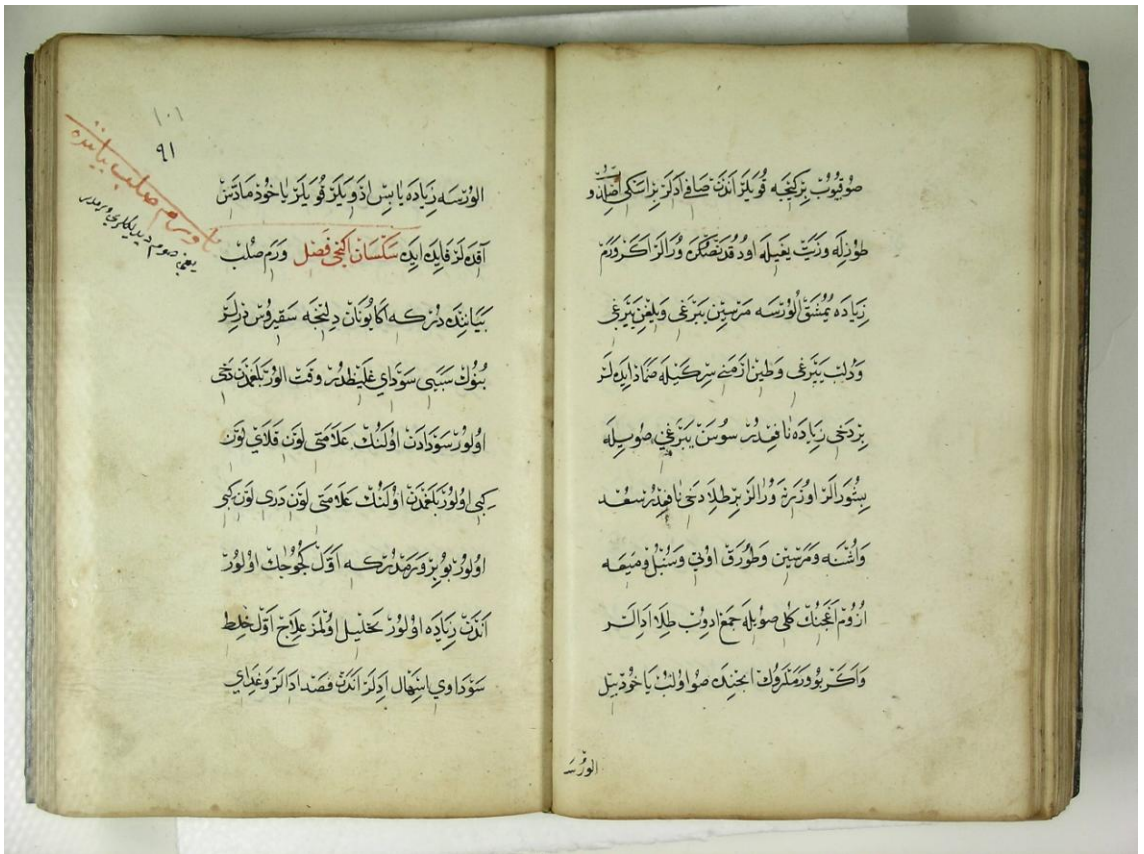 صوقيوب بر كيجه قويلر اندن صافي ادلر بر اسكي اصلدو
طوزله وزيت يغيله اودقدنصكره ورالر اكر ورم
زياده يمشق الورسه مرسين يبرغي وبلغن يبرغي
ودلب يبرغي وطين ازمني سركيله ضماد ايدهلر
بر دخي زياده نافعدر سوسن يبرغي صويله
بشورلر اوزره ورالر بر طلا دخي نافعدر سعد
واشنه ومرسين وطورق اوتي وسنبل وميعه
اوزوم اغجنك كلي صويله جمع ادوب طلا ادالر
واكر بو ورملروك ايجنده صو اولب ياخود ييل
الورسه
١٠١
٩١
ورم صلب بياننده
الورسه زياده يابس ادويلر قويلر ياخوذ مادتن
آقده لر فايده ايده سكسان ايكنجي فصل ورم صلب
بياننده در كه اكا يونان دلنجه سقيروس درلر
بنوك سببي سوداي غليظدر وقت الور بلغمدن دخي
اولور سودادن اولنك علامتي لون قلاي لون
كبي اولور بلغمدن اولنك علامتي لون دري لون كبي
اولور بو بر ورمدر كه اول كجوجك اولور
اندن زياده اولور تحليل اولمز علاج اول خلط
سوداوي اسهال ادلر اندن فصد ادالر وغداي